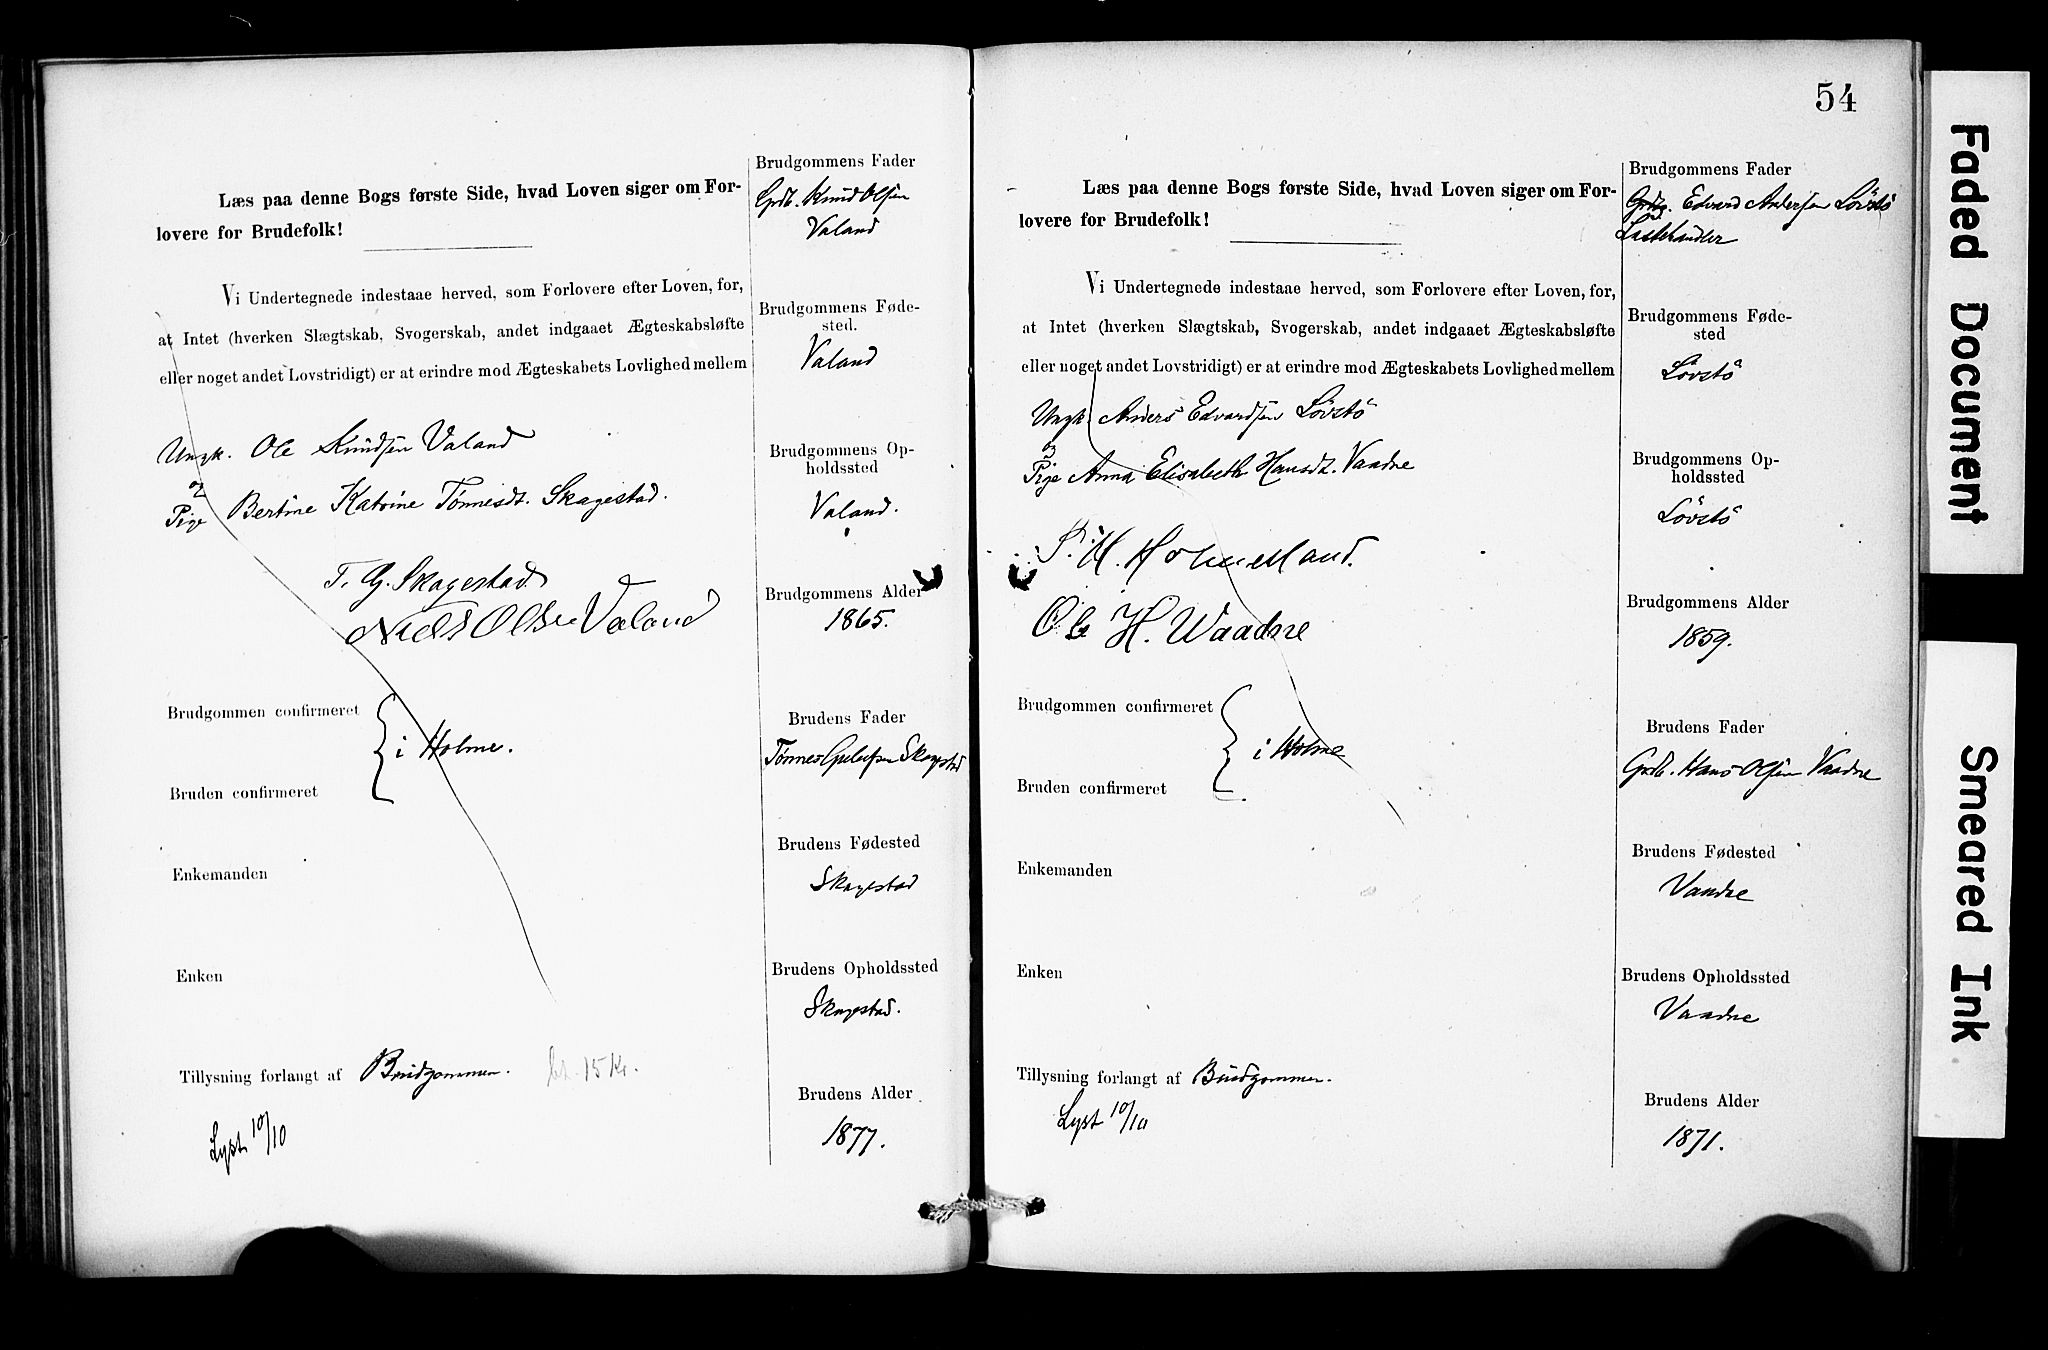 Læs paa denne Bogs første Side, hvad Loven siger om For-
lovere for Brudefolk!
Vi Undertegnede indestaae herved, som Forlovere efter Loven, for,
at Intet (hverken Slægtskab, Svogerskab, andet indgaaet Ægteskabsløfte
eller noget andet Lovstridigt) er at erindre mod Ægteskabets Lovlighed mellem
Ungk. Ole Knudsen Valand
og
Pige Bertine Katrine Tønnesdt. Skagestad.
T. G. Skagestad
Niels Olsen Valand
Brudgommen confirmeret
i Holme.
Bruden confirmeret
Enkemanden
Enken
Tillysning forlangt af Brudgommen. bt. 15 Kr.
Lyst 10/10
Brudgommens Fader
Grdb. Knud Olsen
Valand
Brudgommens Føde-
sted.
Valand
Brudgommens Op-
holdssted
Valand.
Brudgommens Alder
1865.
Brudens Fader
Tønnes Skagestad
Brudens Fødested
Skagestad
Brudens Opholdssted
Skagestad.
Brudens Alder
1877.
54
Læs paa denne Bogs første Side, hvad Loven siger om For-
lovere for Brudefolk!
Vi Undertegnede indestaae herved, som Forlovere efter Loven, for,
at Intet (hverken Slægtskab, Svogerskab, andet indgaaet Ægteskabsløfte
eller noget andet Lovstridigt) er at erindre mod Ægteskabets Lovlighed mellem
Ungk. Anders Edvardsen Lövstö
og
Pige Anna Elisabeth Hansdt. Vaadne
P. H. Homelland.
Ole H. Waadne
Brudgommen confirmeret
i Holme
Bruden confirmeret
Enkemanden
Enken
Tillysning forlangt af Brudgommen.
Lyst 10/10
Brudgommens Fader
Edvard Andersen Lövstö
Brudgommens Føde-
sted
Lövstö
Brudgommens Op-
holdssted
Lövstö
Brudgommens Alder
1859.
Brudens Fader
Grdb. Hans Olsen Vaadne
Brudens Fødested
Vaadne
Brudens Opholdssted
Vaadne
Brudens Alder
1871.
Faded Document
Smeared Ink